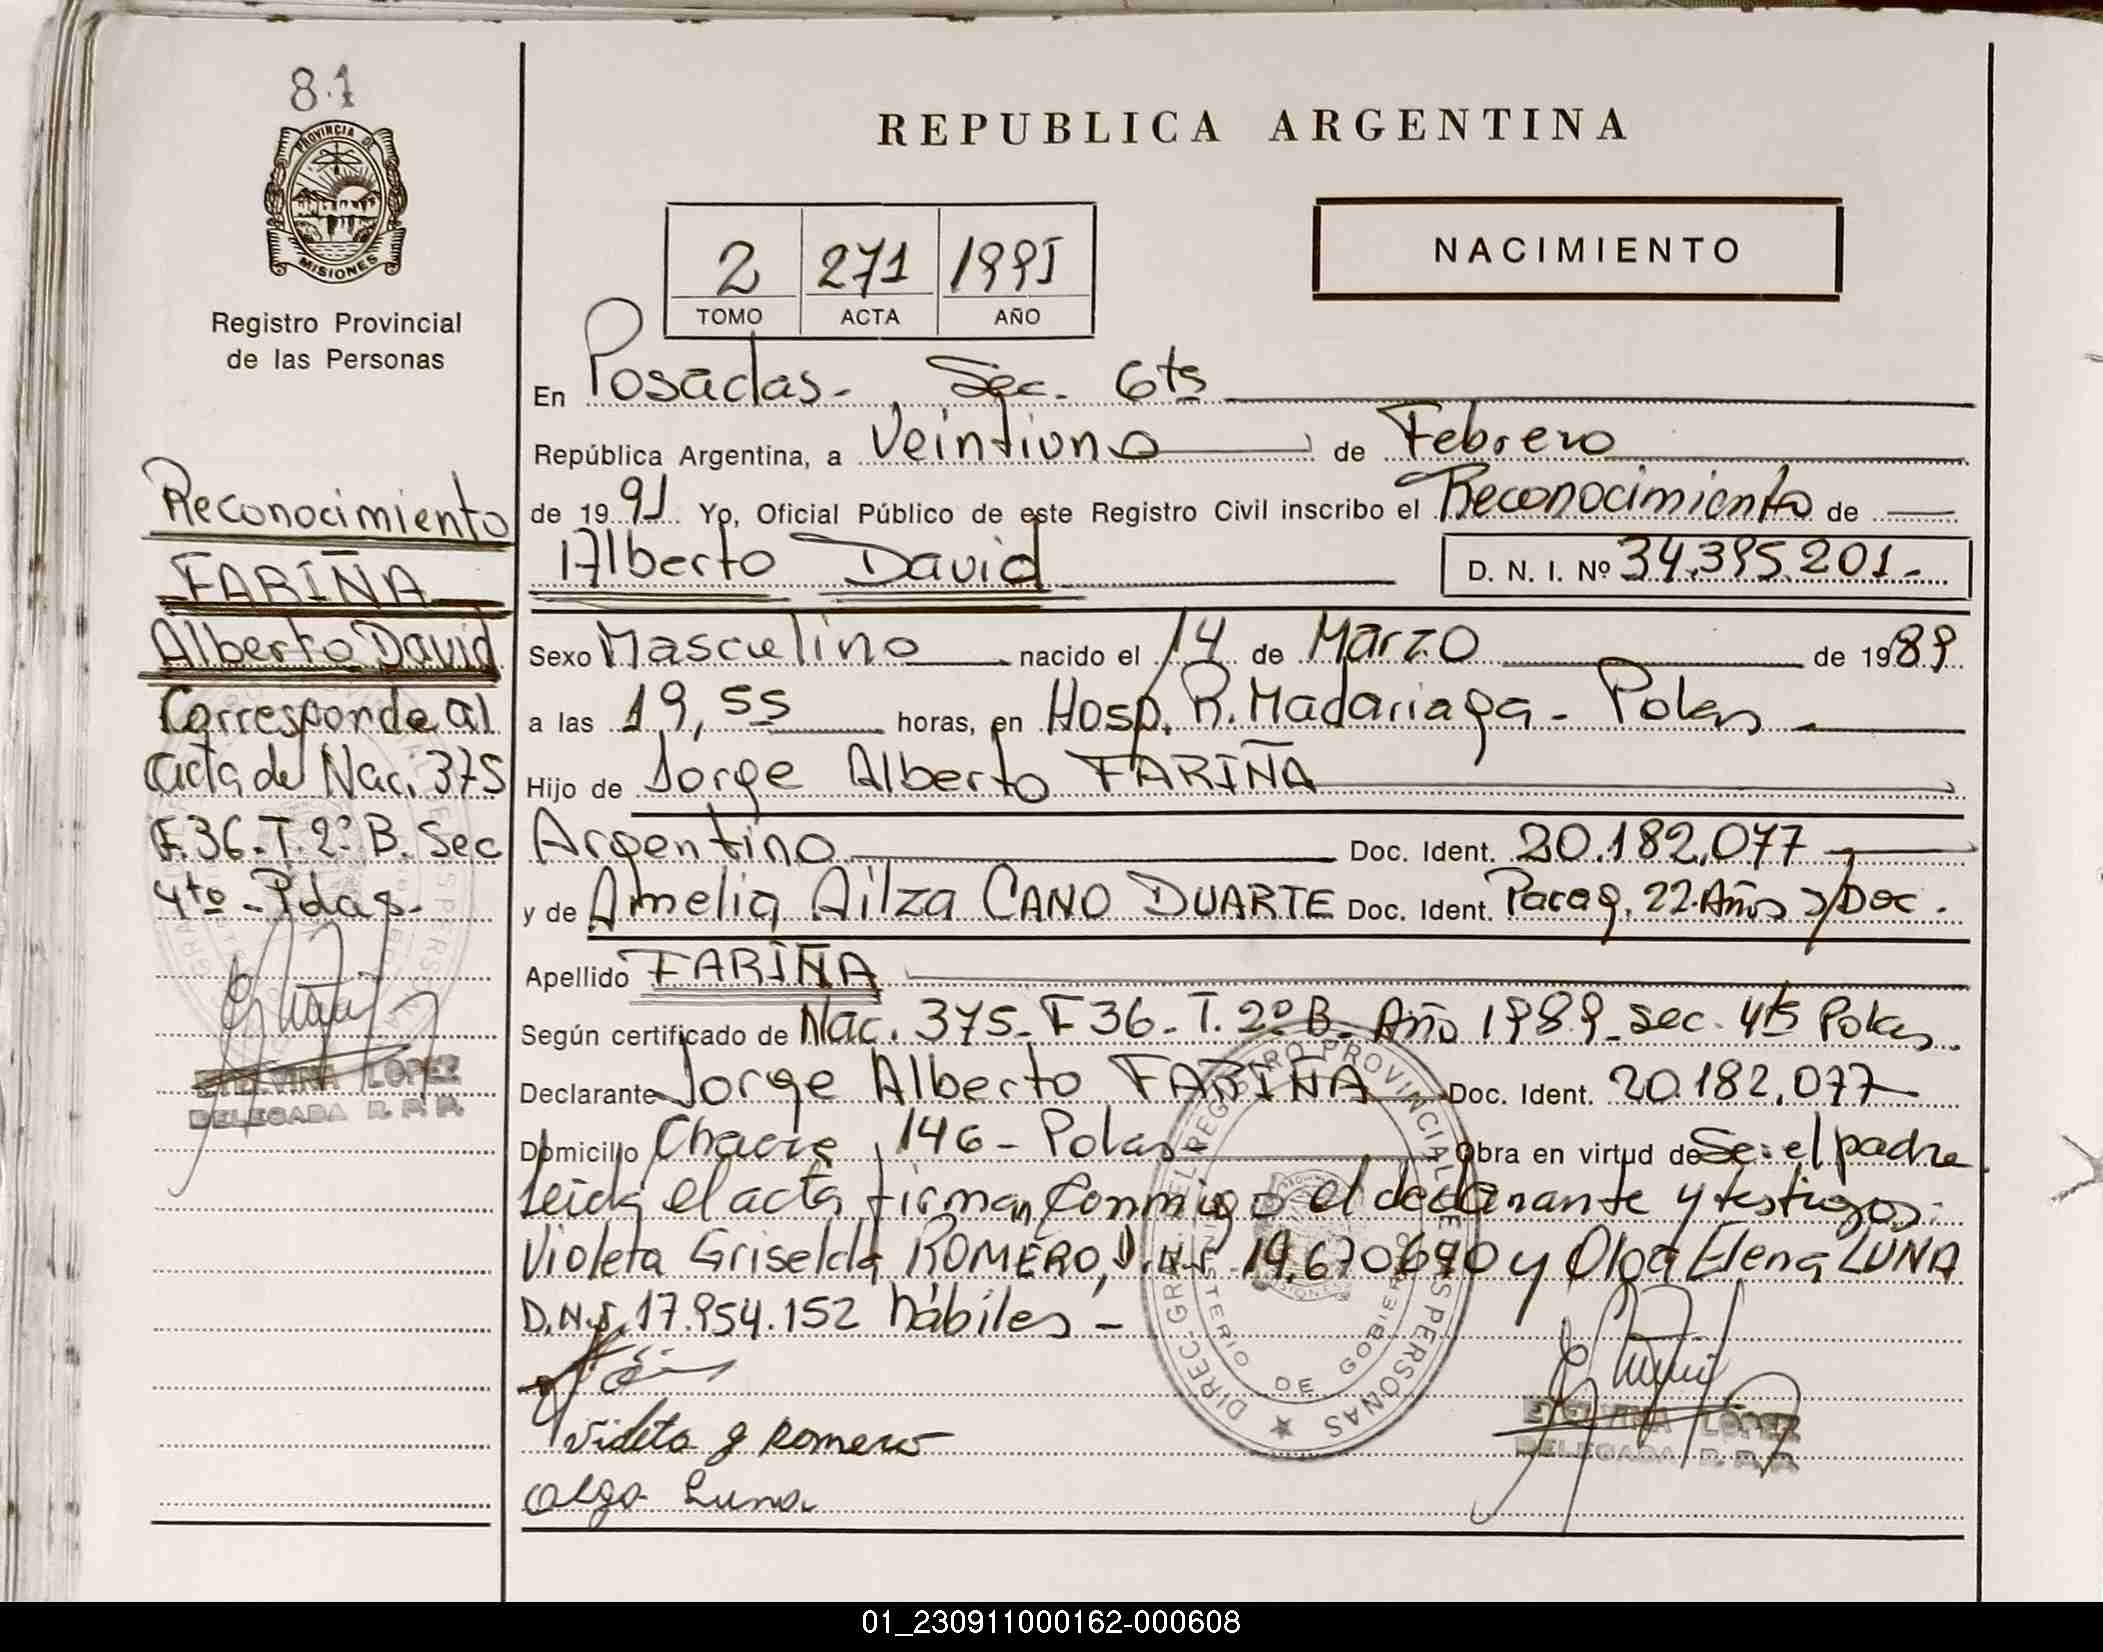 81
PROVINCIA DE
MISIONES
Registro Provincial
de las Personas
REPUBLICA ARGENTINA
2 271 1991
TOMO ACTA AÑO
NACIMIENTO
En Posadas- Sec. 6ta
República Argentina, a Veintiuno de Febrero
de 1991 Yo, Oficial Público de este Registro Civil inscribo el Reconocimiento de
Alberto David D. N. I. Nº 34.395.201.-
Sexo Masculino nacido el 14 de Marzo de 1989
a las 19,55 horas, en Hosp. R. Madariaga - Pdas
Hijo de Jorge Alberto FARIÑA
Argentino Doc. Ident. 20.182.077
y de Amelia Ailza CANO DUARTE Doc. Ident. Parag. 22 Años s/Doc.
Apellido FARIÑA
Según certificado de Nac. 375- F 36- T. 2º B- Año 1989- Sec. 4ta Pdas.
Declarante Jorge Alberto FARIÑA Doc. Ident. 20.182.077
Domicilio Chacra 146 - Pdas- Obra en virtud de Ser el padre
Leida el acta firman conmigo el declarante y testigos:
Violeta Griselda ROMERO, D.N.I. 19.670.690 y Olga Elena LUNA
D.N.I. 17.954.152 hábiles -
Violeta g Romero
Olga Luna
DIREC. GRAL. DEL REGISTRO PROVINCIAL DE LAS PERSONAS
MINISTERIO DE GOBIERNO
MISIONES
ETELVINA LOPEZ
DELEGADA R. P. P.
Reconocimiento
FARIÑA
Alberto David
Corresponde al
acta de Nac. 375
F. 36- T. 2º B. Sec
4to - Pdas-
ETELVINA LOPEZ
DELEGADA R. P. P.
01_230911000162-000608